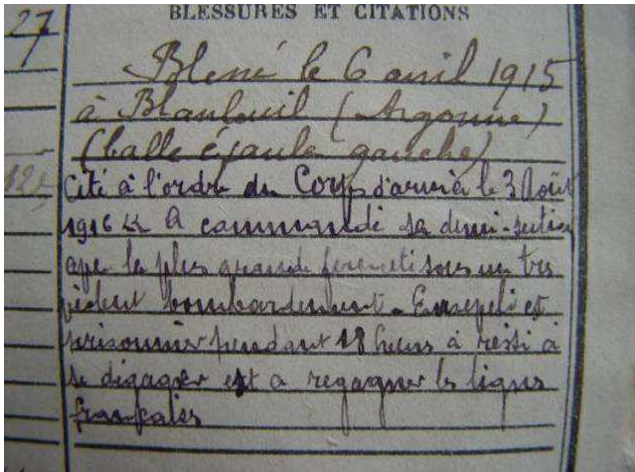 27
BLESSURES ET CITATIONS
Blessé le 6 avril 1915
à Blanleuil (Argonne)
(balle épaule gauche)
Cité à l'ordre du Corps d'armée le 3 Août
1916 « A commandé sa demi-section
avec la plus grande fermeté sous un très
violent bombardement. Enseveli et
prisonnier pendant 18 heures à réssi à
se dégager et a regagner les lignes
françaises